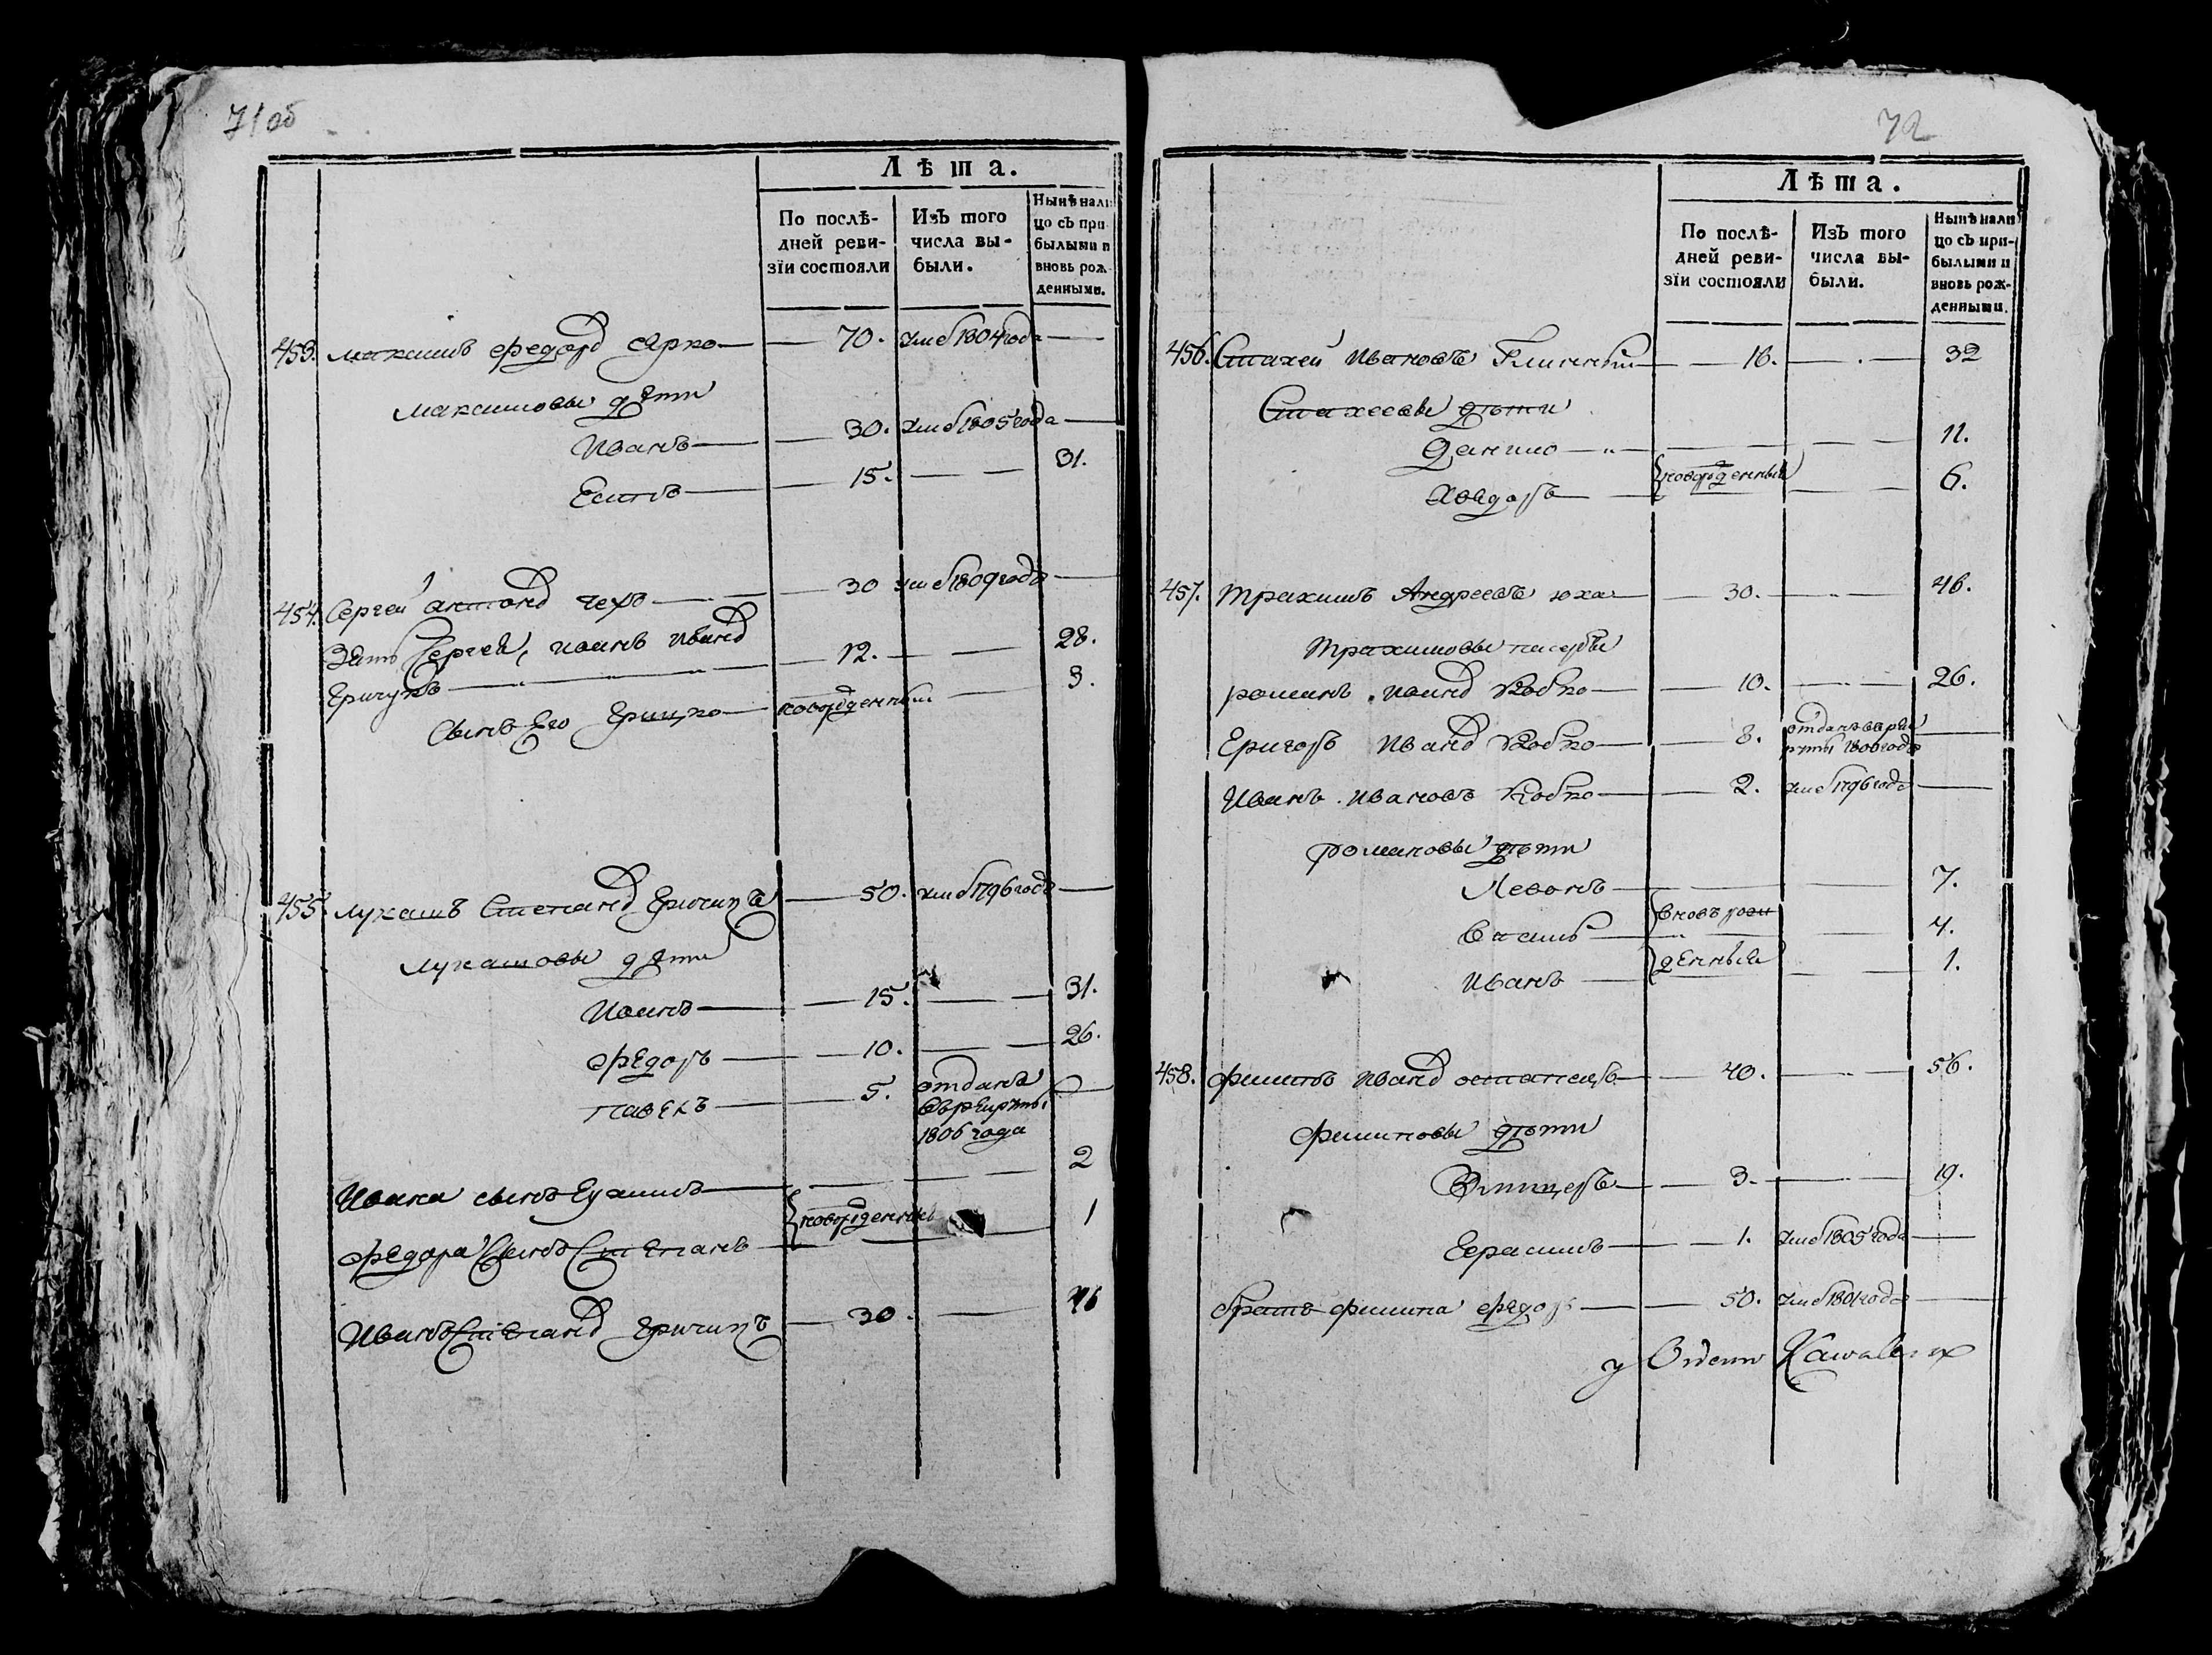 71 об
Лѣта.
По послѣ-
дней реви-
зїи состояли
Изъ того
числа вы-
были.
Нынѣ нали
цо съ при-
былыми и
вновь рож-
денными.
453. Максимъ Федоров Ярко — 70. умеб 1804 года —
Максимовы дѣти
Иванъ — 30. умеб 1805 года —
Есипъ — 15. — 31.
454. Сергей Антонов Чехъ — 30 умеб 1809 года —
Зять Сергея, Иванъ Иванов
Гричукъ — 12. — 28.
Сынъ Его Грицко — новорожденный — 3.
455. Лукашъ Степанов Гричикъ — 50. умеб 1796 года —
Лукашовы дѣти
Иванъ — 15. — 31.
Федоръ — 10. — 26.
Павелъ — 5. отданъ —
в рекруты
1806 года
Ивана сынъ Ехимъ — 2
новорожденны
Федора Сынъ Степанъ — 1
Иванъ Степанов Гричикъ — 30. — 46
72
Лѣта.
По послѣ-
дней реви-
зїи состояли
Изъ того
числа вы-
были.
Нынѣ нали
цо съ при-
былыми и
вновь рож-
денными.
456. Стахей Ивановъ Глинский — 16. — 32
Стахеевы дѣти
Данило — 11.
новорожденныя
Хведоръ — 6.
457. Трахимъ Андреевъ Юха — 30. — 46.
Трахимовы пасербы
Романъ Иванов Кобко — 10. — 26.
Григоръ Иванов Кобко — 8. отданъ въ рек
руты 1806 года —
Иванъ Ивановъ Кобко — 2. умеб 1796 года —
Романовы дѣти
Левонъ — 7.
вновь рож
Василь — 4.
денныя
Иванъ — 1.
458. Филипъ Иванов Остапецъ — 40. — 56.
Филиповы дѣти
Винцеръ — 3. — 19.
Герасимъ — 1. умеб 1805 года —
братъ Филипа Федоръ — 50. умеб 1801 года —
y Orderow Kawaler